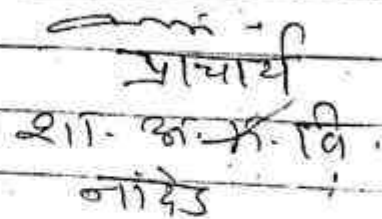 प्राचार्य
शा. अ. म. वि.
नांदेड